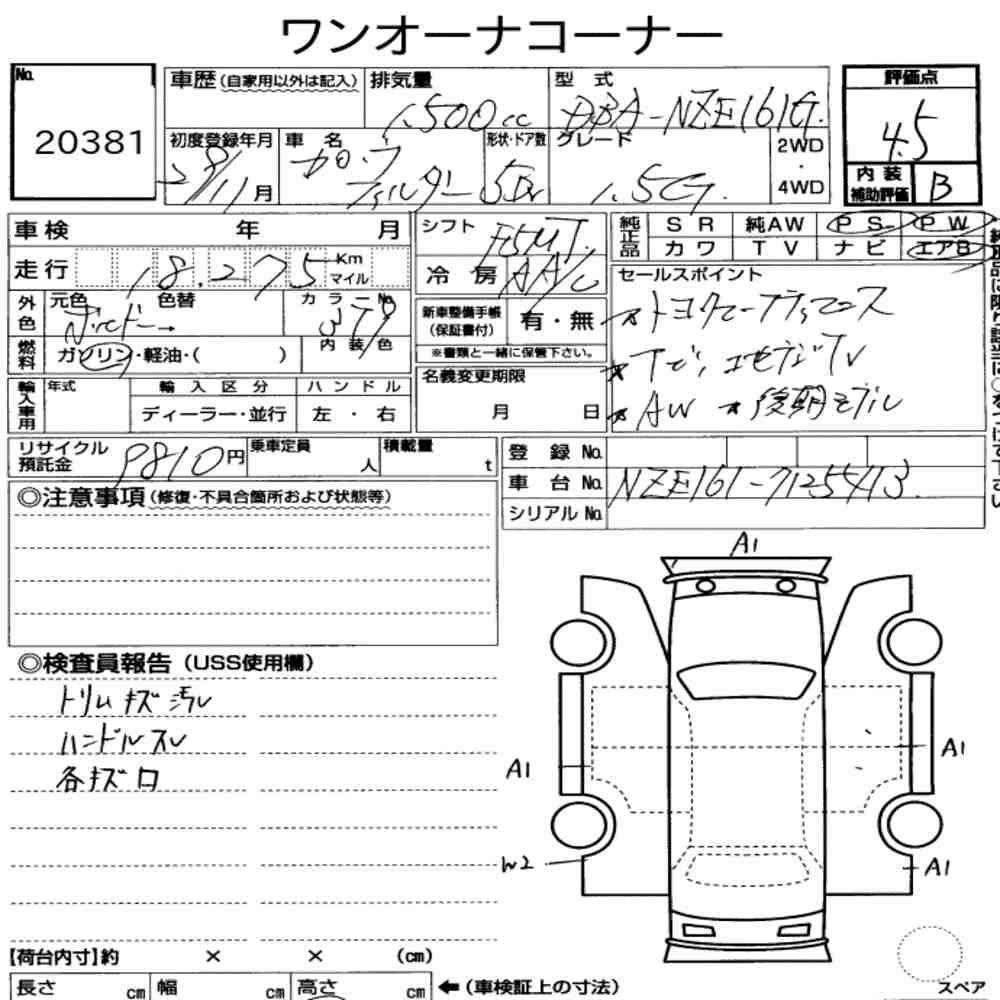 ワンオーナコーナー
No. 20381
車歴(自家用以外は記入) 排気量 1,500cc 型式 DBA-NZE161G.
評価点 4.5
内装補助評価 B
初度登録年月 28/11月 車名 カローラ フィルダー 形状・ドア数 5D グレード 1.5G. 2WD・4WD
車検 年 月
走行 18,275 Km マイル
シフト F5MT.
冷房 AA/C
純正品 SR 純AW PS PW
カワ TV ナビ エアB
外色 元色 色替 カラーNo. 3T9
内装色
燃料 ガソリン・軽油・( )
新車整備手帳(保証書付) 有・無
※書類と一緒に保管下さい。
セールスポイント
★AW ★後期モデル
輸入車用 年式 輸入区分 ディーラー・並行 ハンドル 左・右
名義変更期限 月 日
リサイクル預託金 9810円 乗車定員 人 積載量 t
登録No.
車台No. NZE161-7125413.
シリアルNo.
◎注意事項(修復・不具合箇所および状態等)
◎検査員報告(USS使用欄)
トリムキズ汚レ
ハンドルスレ
各キズ口
A1
A1
A1
W2
A1
【荷台内寸】約 × × (cm)
長さ cm 幅 cm 高さ cm ←(車検証上の寸法)
スペア